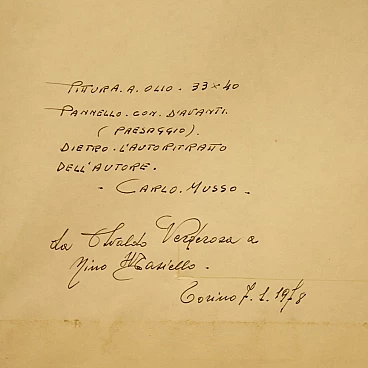 PITTURA. A. OLIO. 33x40
PANNELLO. CON. D'AVANTI.
( PAESAGGIO ).
DIETRO. L'AUTORITRATTO
DELL'AUTORE.
- CARLO. MUSSO -
da Osvaldo Verderosa a
Nino Masiello.
Torino 7. 1. 1978